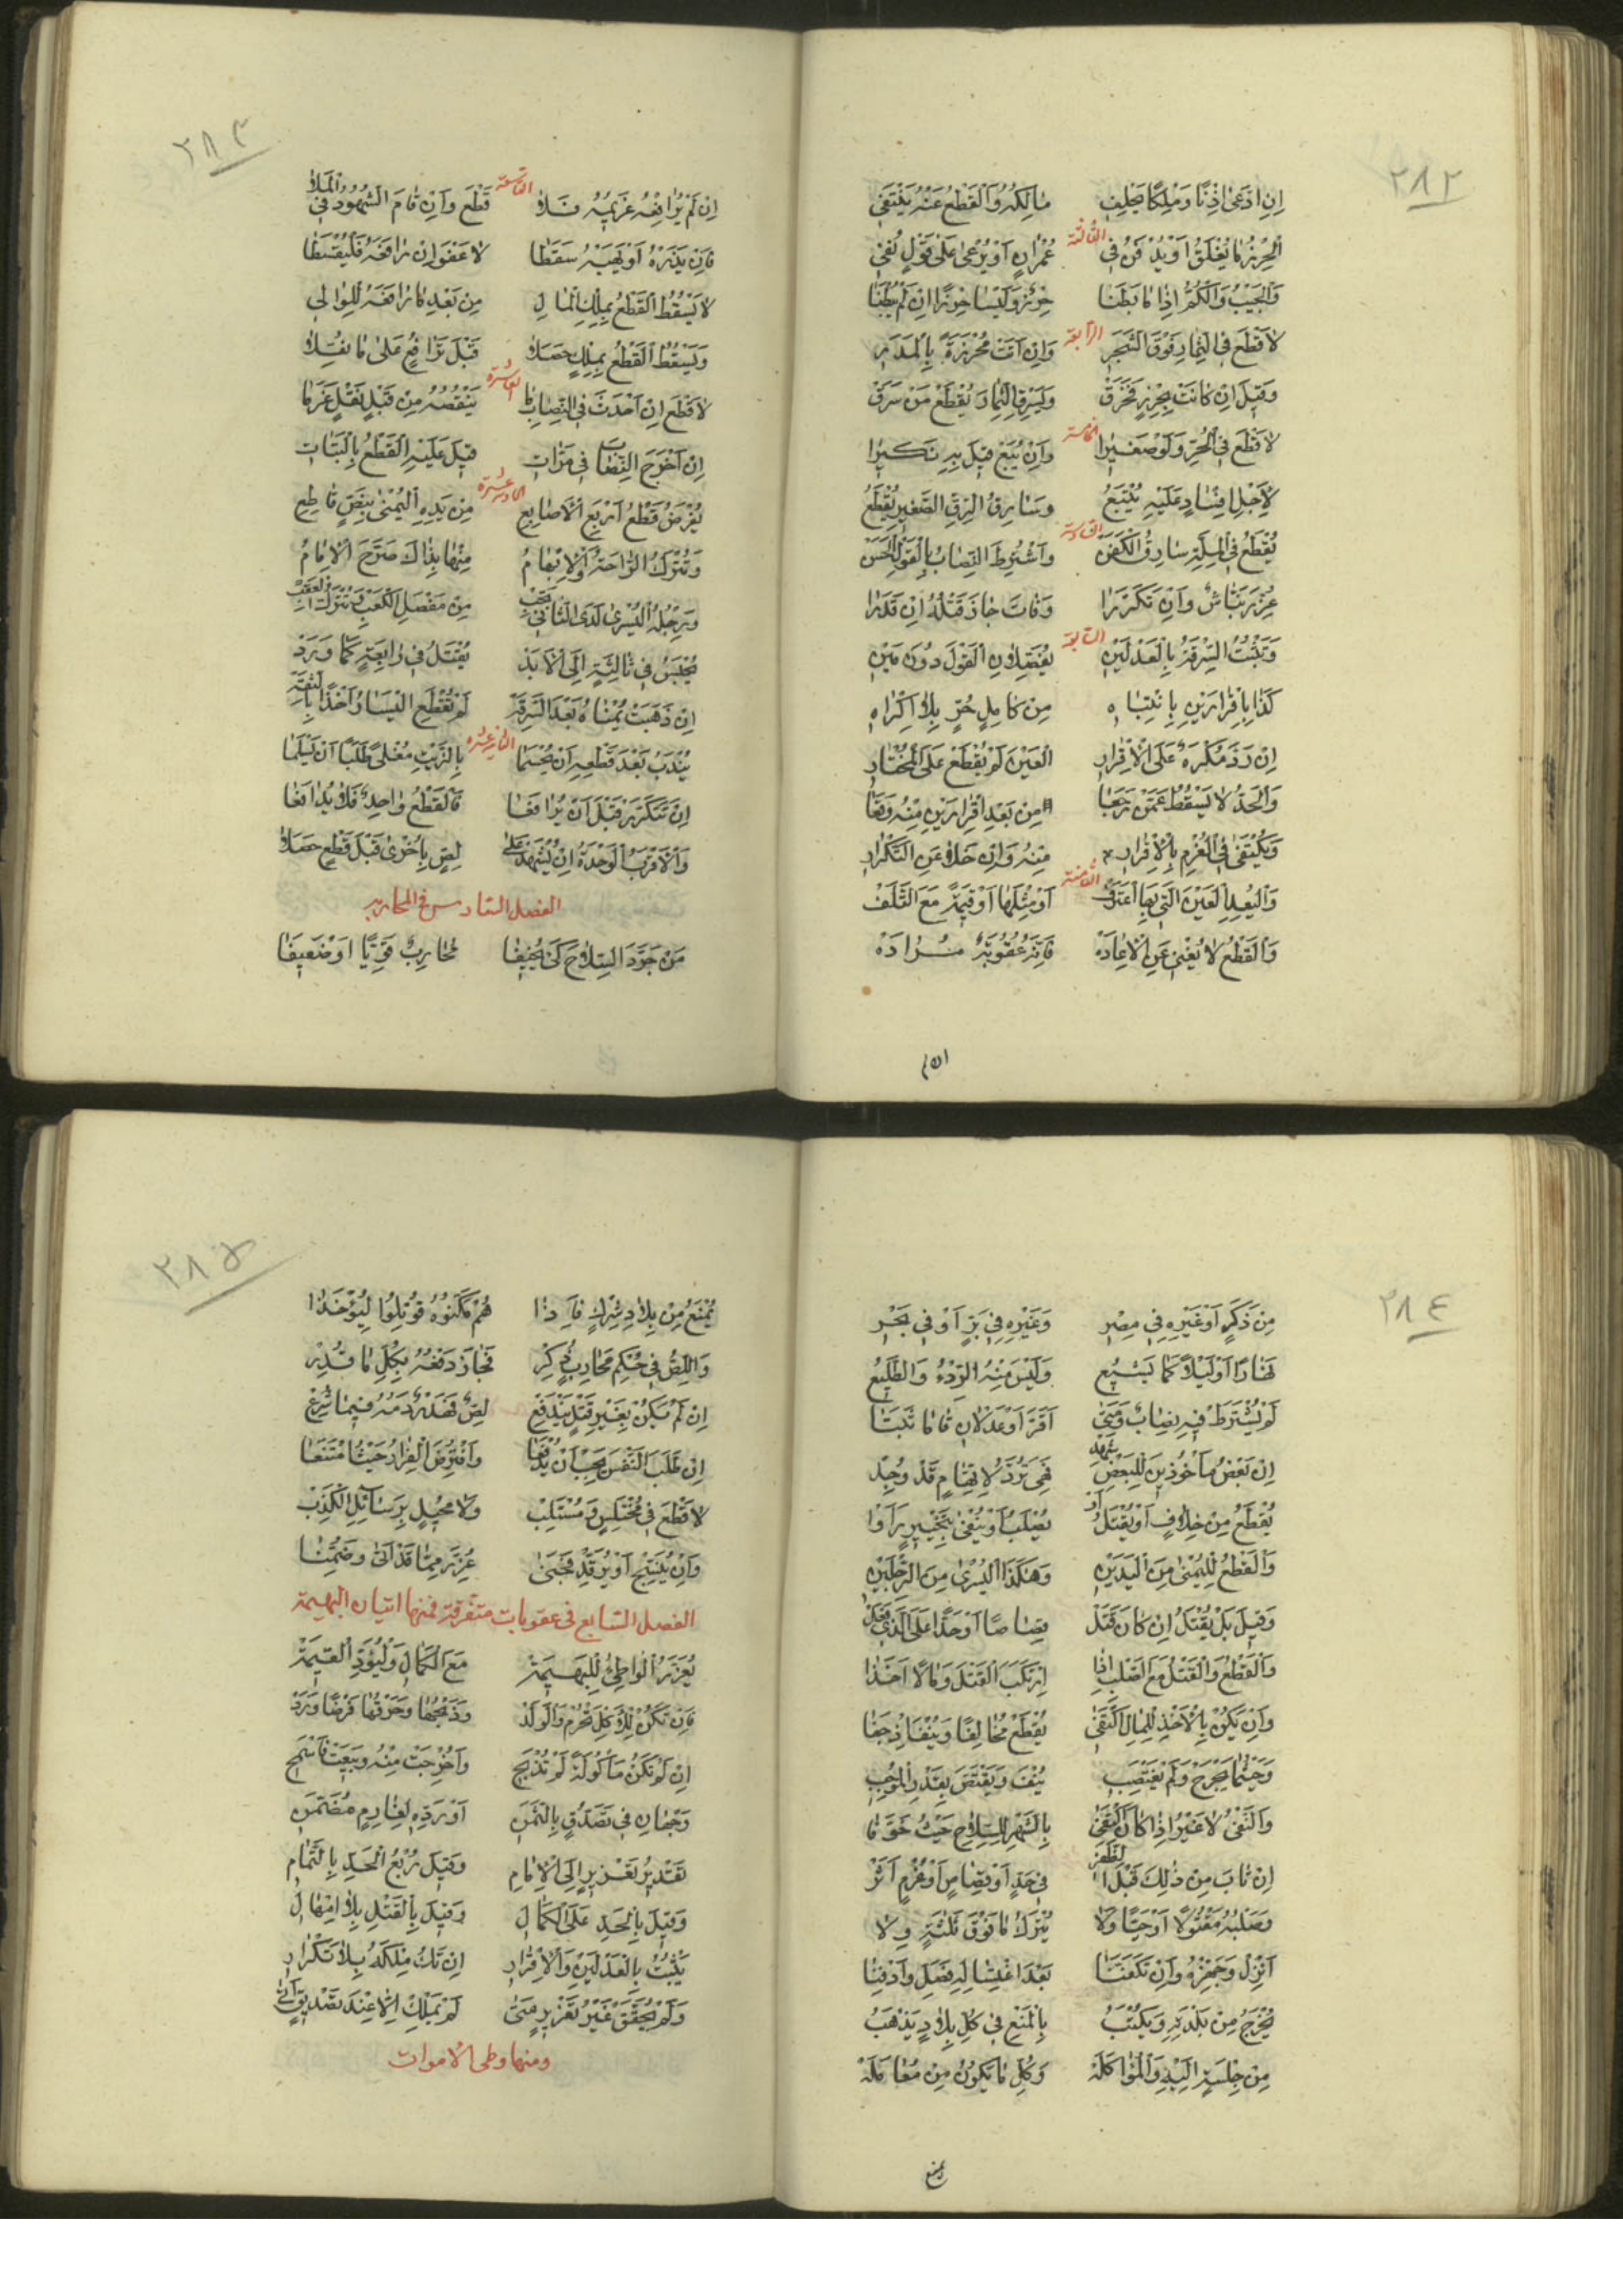 ٢٨٢
إِنِ ادَّعَىٰ إِذْنًا وَمِلْكًا يَحْلِفِ مَالِكُهُ وَالْقَطْعُ عَنْهُ يَنْتَفِي
الثالثة
اَلْحِرْزُ مَا يُغْلَقُ أَوْ يُدْفَنُ فِي عُمْرَانٍ أَوْ يُرْعَىٰ عَلَىٰ قَوْلٍ نُفِي
وَالْجَيْبُ وَالْكُمُّ إِذَا مَا بَطَنَا حِرْزٌ وَلَيْسَا حِرْزًا إِنْ لَمْ يَبْطُنَا
الرابعة
لَا قَطْعَ فِي الثِّمَارِ فَوْقَ الشَّجَرِ وَإِنْ أَتَتْ مُحْرَزَةً بِالْمَدَرِ
وَقِيلَ إِنْ كَانَتْ بِحِرْزٍ فَخَرَقْ وَلِسَرِقِ الثِّمَارَ يُقْطَعْ مَنْ سَرَقْ
الخامسة
لَا قَطْعَ فِي الْحُرِّ وَلَوْ صَغِيرًا وَإِنْ يُبَعْ قِيلَ بِهِ نَكِيرًا
لِأَجْلِ إِفْسَادٍ عَلَيْهِ يُتْبَعُ وَسَارِقُ الرِّقِّ الصَّغِيرِ يُقْطَعُ
السادسة
يُقْطَعُ فِي الْمِلَّةِ سَارِقُ الْكَفَنْ وَاشْتُرِطَ النِّصَابُ بِالْقَوْلِ الْحَسَنْ
عُزِّرَ نَبَّاشٌ وَإِنْ تَكَرَّرَا وَفَاتَ جَازَ قَتْلُهُ إِنْ قُدِرَا
السابعة
وَتَثْبُتُ السَّرِقَةُ بِالْعَدْلَيْنِ يُفَصِّلُونِ الْقَوْلَ دُونَ مَيْنِ
كَذَا بِإِقْرَارَيْنِ بِانْتِبَاهِ مِنْ كَامِلٍ حُرٍّ بِلَا إِكْرَاهِ
إِنْ رَدَّ مُكْرَهٌ عَلَى الْإِقْرَارِ الْعَيْنَ لَمْ يُقْطَعْ عَلَى الْمُخْتَارِ
وَالْحَدُّ لَا يَسْقُطُ عَمَّنْ رَجَعَا مِنْ بَعْدِ إِقْرَارَيْنِ مِنْهُ وَقَعَا
وَيُكْتَفَىٰ فِي الْغُرْمِ بِالْإِقْرَارِ مِنْهُ وَإِنْ خَلَا عَنِ التَّكْرَارِ
الثامنة
وَالْيُعِدِ الْعَيْنَ الَّتِي بِهَا اعْتَرَفْ أَوْ مِثْلَهَا أَوْ قِيمَةً مَعَ التَّلَفْ
وَالْقَطْعُ لَا يُغْنِي عَنِ الْإِعَادَهْ فَإِنَّهُ عُقُوبَةٌ مُرَادَهْ
٢٨٣
التاسعة
إِنْ لَمْ يُرَافِعْهُ غَرِيمُهُ فَلَا قَطْعَ وَإِنْ قَامَ الشُّهُودُ فِي الْمَلَا
فَإِنْ يَذَرْهُ أَوْ يَهَبْهُ سَقَطَا لَا عَفْوَ إِنْ رَافَعَهُ فَلْيُقْسِطَا
لَا يَسْقُطُ الْقَطْعُ بِمِلْكِ الْمَالِ مِنْ بَعْدِ مَا رَافَعَهُ لِلْوَالِي
وَيَسْقُطُ الْقَطْعُ بِمِلْكٍ حَصَلَا قَبْلَ تَرَافُعٍ عَلَىٰ مَا نُقِلَا
العاشرة
لَا قَطْعَ إِنْ أَحْدَثَ فِي النِّصَابِ مَا يَنْقُصُهُ مِنْ قَبْلِ نَقْلٍ غَرِمَا
إِنْ أَخْرَجَ النِّصَابَ فِي مَرَّاتِ قِيلَ عَلَيْهِ الْقَطْعُ بِالْبَتَاتِ
الحادية عشرة
يُفْرَضُ قَطْعُ أَرْبَعِ الْأَصَابِعِ مِنْ يَدِهِ الْيُمْنَىٰ بِنَصٍّ قَاطِعِ
وَتُتْرَكُ الرَّاحَةُ وَالْإِبْهَامُ مِنْهَا بِذَاكَ صَرَّحَ الْإِمَامُ
وَرِجْلُهُ الْيُسْرَىٰ لَدَى الثَّانِي تَجِبْ مِنْ مَفْصَلِ الْكَعْبِ وَتُتْرَكُ الْعَقِبْ
يُحْبَسُ فِي ثَالِثَةٍ إِلَى الْأَبَدْ يُقْتَلُ فِي رَابِعَةٍ كَمَا وَرَدْ
إِنْ ذَهَبَتْ يُمْنَاهُ بَعْدَ السَّرِقَهْ لَمْ تُقْطَعِ الْيَسَارُ أَخْذًا بِالثِّقَهْ
الثانية عشرة
يُنْدَبُ بَعْدَ قَطْعِهِ أَنْ يُحْسَمَا بِالزَّيْتِ مُغْلًى طَلَبًا أَنْ يَسْلَمَا
إِنْ تَتَكَرَّرْ قَبْلَ أَنْ يُرَافَعَا فَالْقَطْعُ وَاحِدٌ فَلَا يُدَافَعَا
وَالْأَقْرَبُ الْوَحْدَةُ إِنْ يُشْهَدْ عَلَىٰ لِصٍّ بِأُخْرَىٰ قَبْلَ قَطْعٍ حَصَلَا
الفصل السادس في المحارب
مَنْ جَرَّدَ السِّلَاحَ كَيْ يُخِيفَا مُحَارِبٌ قَوِيًّا أَوْ ضَعِيفَا
٢٨٤
مِنْ ذَكَرٍ أَوْ غَيْرِهِ فِي مِصْرِ وَغَيْرِهِ فِي بَرٍّ أَوْ فِي بَحْرِ
نَهَارًا أَوْ لَيْلًا كَمَا يَشِيعُ وَلَيْسَ مِنْهُ الرِّدْءُ وَالطَّلِيعُ
لَمْ يُشْتَرَطْ فِيهِ نِصَابٌ وَمَتَىٰ أَقَرَّ أَوْ عَدْلَانِ قَامَا ثَبَتَا
إِنْ بَعْضُ مَأْخُوذِينَ لِلْبَعْضِ شَهِدْ فَهِيَ تُرَدُّ لِاتِّهَامٍ قَدْ وُجِدْ
يُقْطَعُ مِنْ خِلَافٍ أَوْ يُقْتَلُ أَوْ يُصْلَبُ أَوْ يُنْفَىٰ بِتَخْيِيرٍ رَأَوْا
وَالْقَطْعُ لِلْيُمْنَىٰ مِنَ الْيَدَيْنِ وَهٰكَذَا الْيُسْرَىٰ مِنَ الرِّجْلَيْنِ
وَقِيلَ بَلْ يُقْتَلُ إِنْ كَانَ قَتَلْ قِصَاصًا أَوْ حَدًّا عَلَى الَّذِي فَعَلْ
وَالْقَطْعُ وَالْقَتْلُ مَعَ الصَّلْبِ إِذَا ارْتَكَبَ الْقَتْلَ وَمَالًا أَخَذَا
وَإِنْ يَكُنْ بِالْأَخْذِ لِلْمَالِ اكْتَفَىٰ يُقْطَعْ مُخَالِفًا وَيُنْفَ إِذْ جَفَا
وَحَيْثُمَا يَجْرَحْ وَلَمْ يَغْتَصِبِ يُنْفَ وَيُقْتَصَّ بِقَدْرِ الْمُوجِبِ
وَالنَّفْيُ لَا غَيْرُ إِذَا كَانَ اكْتَفَىٰ بِالشَّهْرِ لِلسِّلَاحِ حَيْثُ خَوَّفَا
إِنْ تَابَ مِنْ ذٰلِكَ قَبْلَ الظَّفَرْ فِي حَدٍّ أَوْ قِصَاصٍ أَوْ غُرْمٍ أَثَرْ
وَصَلْبُهُ مَقْتُولًا أَوْ حَيًّا وَلَا يُتْرَكُ مَا فَوْقَ ثَلٰثَةٍ وِلَا
أَنْزِلْ وَجَهِّزْهُ وَإِنْ تَكَفَّنَا بَعْدَ اغْتِسَالِهِ فَصَلِّ وَادْفِنَا
يُخْرَجُ مِنْ بَلْدَتِهِ وَيُكْتَبُ بِالْمَنْعِ فِي كُلِّ بِلَادٍ يَذْهَبُ
مِنْ جِلْسَةٍ إِلَيْهِ وَالْمُوَاكَلَهْ وَكُلِّ مَا يَكُونُ مِنْ مُعَامَلَهْ
يمنع
٢٨٥
يُمْنَعُ مِنْ بِلَادِ شِرْكٍ فَإِذَا هُمْ مَكَّنُوهُ قُوتِلُوا لِيُؤْخَذَا
وَاللِّصُّ فِي حُكْمِ مُحَارِبٍ ذُكِرْ فَجَازَ دَفْعُهُ بِكُلِّ مَا قُدِرْ
إِنْ لَمْ يَكُنْ بِغَيْرِ قَتْلٍ يَنْدَفِعْ لِصٌّ فَهَدْرٌ دَمُهُ فِيمَا شُرِعْ
إِنْ طَلَبَ النَّفْسَ يَجِبْ أَنْ يُدْفَعَا وَافْتُرِضَ الْفِرَارُ حَيْثُ امْتَنَعَا
لَا قَطْعَ فِي مُخْتَلِسٍ وَمُسْتَلِبْ وَلَا مُحِيلٍ بِرَسَائِلِ الْكَذِبْ
وَإِنْ يُبَنِّجْ أَوْ يُرَقِّدْ فَجَنَىٰ عُزِّرَ مِمَّا قَدْ أَتَىٰ وَضَمِنَا
الفصل السابع في عقوبات متفرقة فمنها اتيان البهيمة
يُعَزَّرُ الْوَاطِئُ لِلْبَهِيمَهْ مَعَ الْكَمَالِ وَلْيُؤَدِّ الْقِيمَهْ
فَإِنْ تَكُنْ لِلْأَكْلِ تَحْرُمْ وَالْوَلَدْ وَذَبْحُهَا وَحَرْقُهَا فَرْضًا وَرَدْ
إِنْ لَمْ تَكُنْ مَأْكُولَةً لَمْ تُذْبَحِ وَأُخْرِجَتْ مِنْهُ وَبِيعَتْ فَاسْمَحِ
وَجْهَانِ فِي تَصَدُّقٍ بِالثَّمَنِ أَوْ رَدِّهِ لِغَارِمٍ مُضَمَّنِ
تَقْدِيرُ تَعْزِيرٍ إِلَى الْإِمَامِ وَقِيلَ رُبْعُ الْحَدِّ بِالتَّمَامِ
وَقِيلَ بِالْحَدِّ عَلَى الْكَمَالِ وَقِيلَ بِالْقَتْلِ بِلَا إِمْهَالِ
يَثْبُتُ بِالْعَدْلَيْنِ وَالْإِقْرَارِ إِنْ تَكُ مِلْكَهُ بِلَا تَكْرَارِ
وَلَمْ يُحَقَّقْ غَيْرُ تَعْزِيرٍ مَتَىٰ لَمْ يَمْلِكْ إِلَّا عِنْدَ تَصْدِيقٍ أَتَىٰ
ومنها وطى الاموات